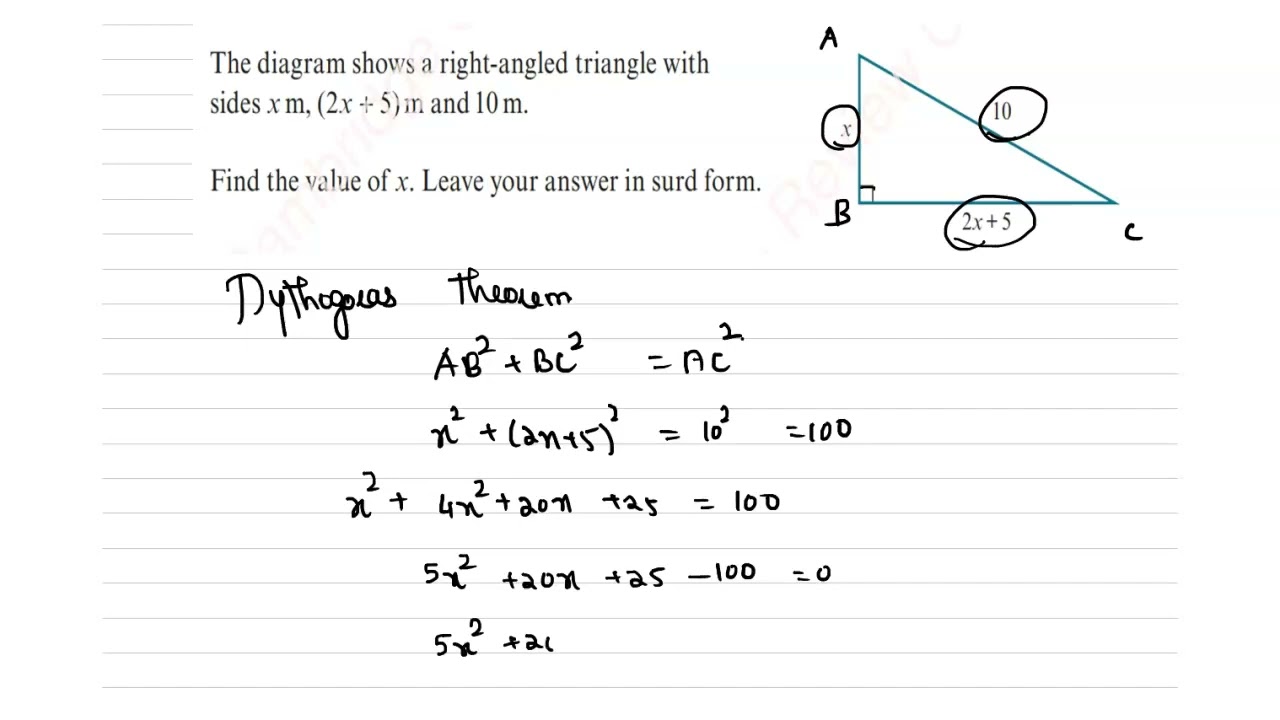 The diagram shows a right-angled triangle with
sides x m, (2x + 5) m and 10 m.
Find the value of x. Leave your answer in surd form.
A
10
x
B
2x + 5
C
Pythogoras Theorem
AB² + BC² = AC²
x² + (2x+5)² = 10² = 100
x² + 4x² + 20x + 25 = 100
5x² + 20x + 25 - 100 = 0
5x² + 20